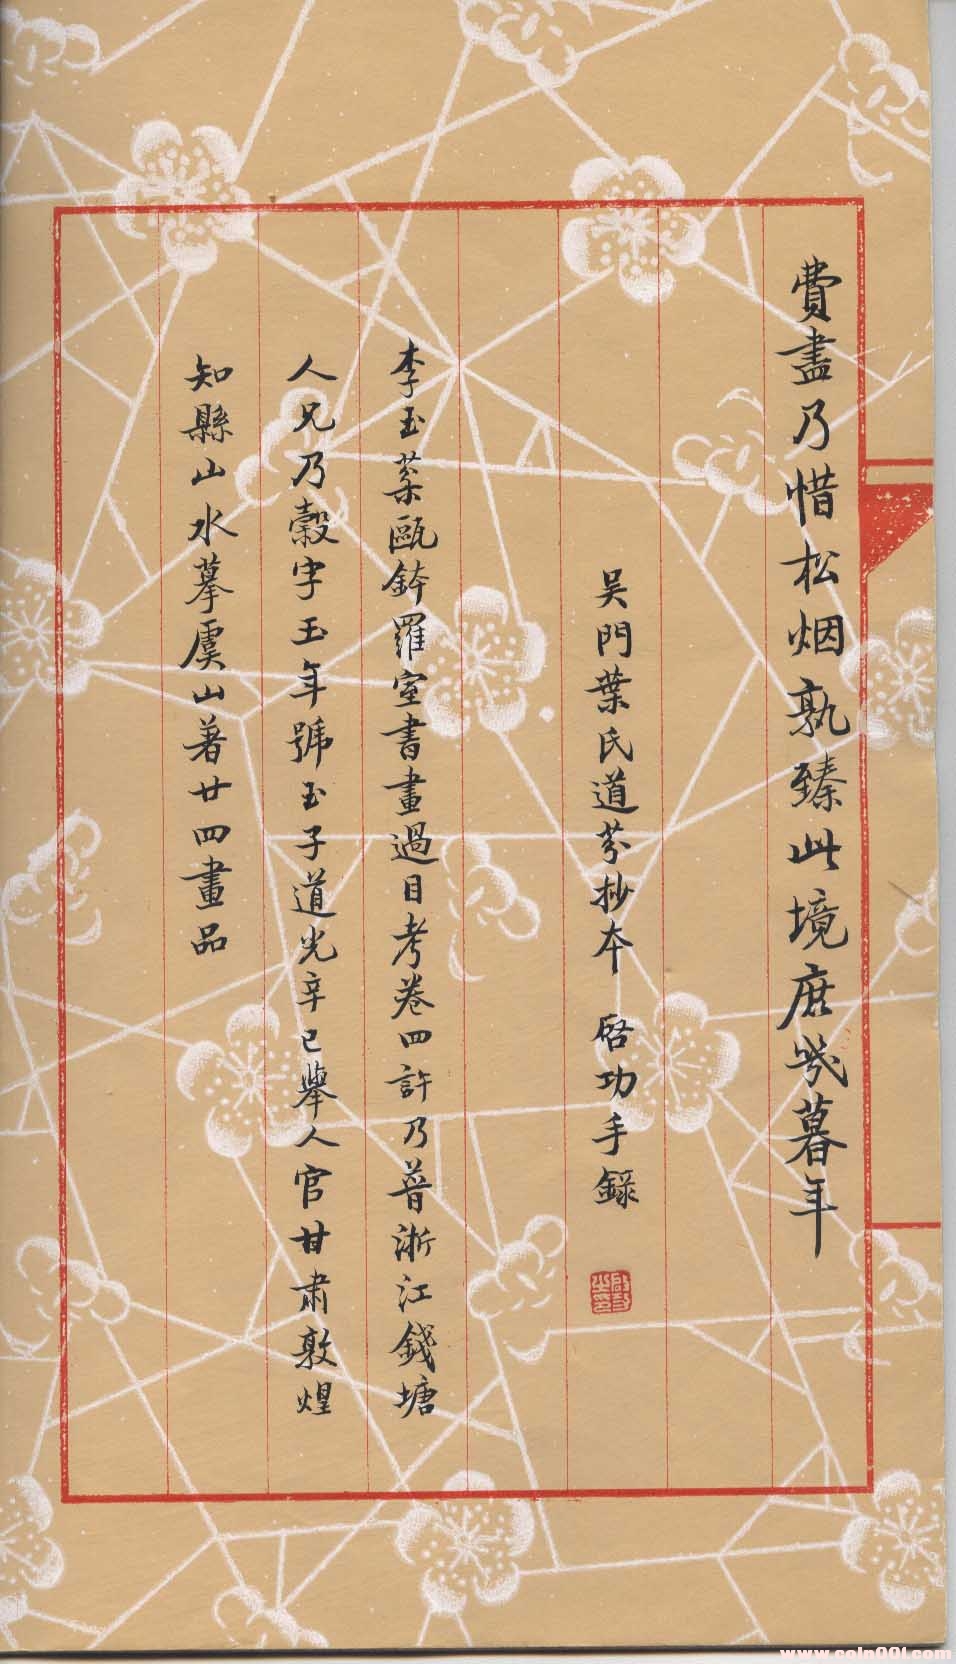 費盡乃惜松烟孰臻此境庶幾暮年
吴門葉氏道芬抄本 啓功手錄
李玉棻甌鉢羅室書畫過目考卷四許乃普浙江錢塘
人兄乃穀字玉年號玉子道光辛巳舉人官甘肅敦煌
知縣山水摹虞山著廿四畫品
www.coin001.com